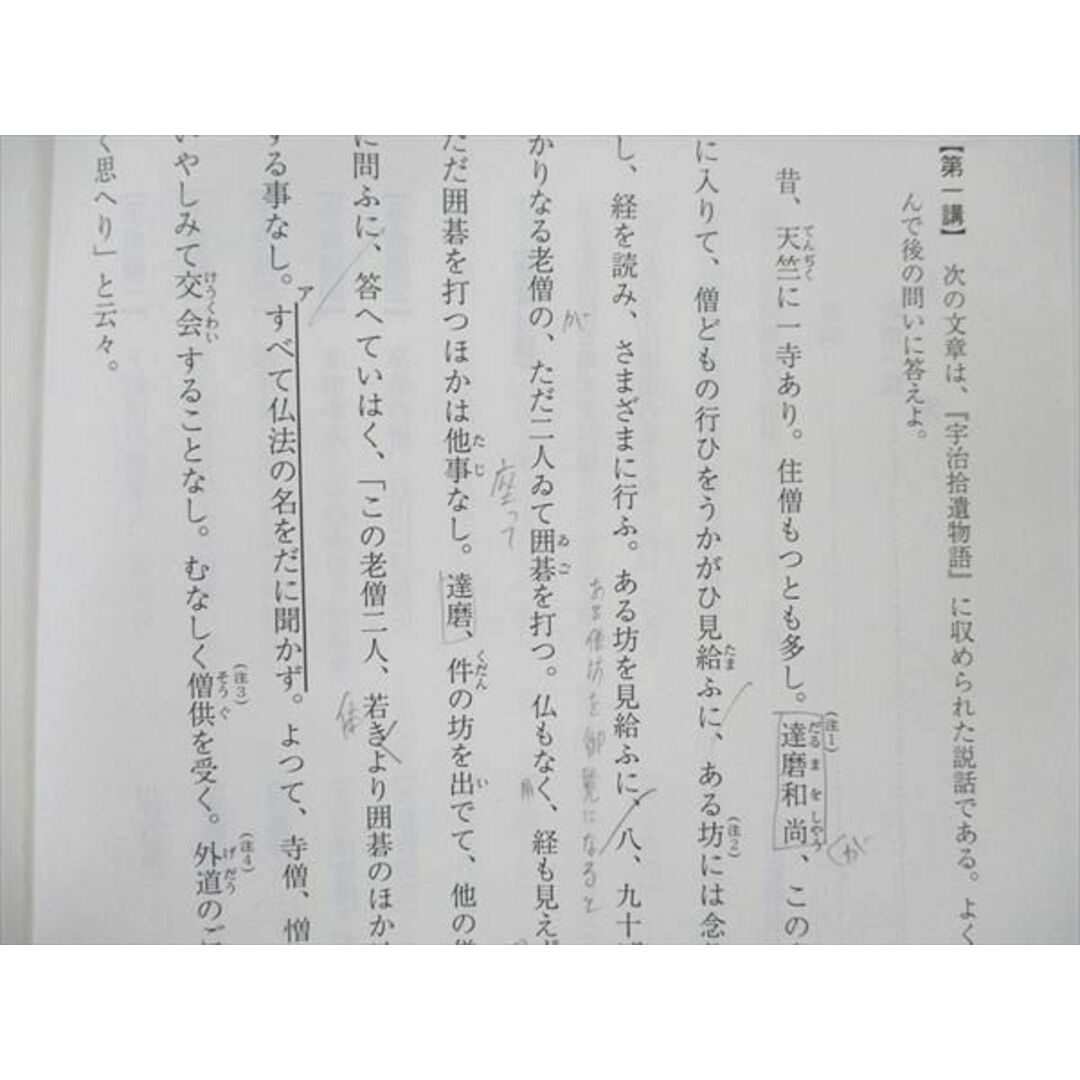 【第一講】 次の文章は、『宇治拾遺物語』に収められた説話である。よく
んで後の問いに答えよ。
昔、天竺に一寺あり。住僧もつとも多し。達磨和尚、この
に入りて、僧どもの行ひをうかがひ見給ふに、ある坊には念
し、経を読み、さまざまに行ふ。ある坊を見給ふに、八、九十
ある僧坊を御覧になると
かりなる老僧の、ただ二人ゐて囲碁を打つ。仏もなく、経も見えず
が
座って
ただ囲碁を打つほかは他事なし。達磨、件の坊を出でて、他の僧
に問ふに、答へていはく、「この老僧二人、若きより囲碁のほか
する事なし。すべて仏法の名をだに聞かず。よつて、寺僧、憎
いやしみて交会することなし。むなしく僧供を受く。外道のご
く思へり」と云々。
てんぢく
(注1)
だるまをしやう
(が
たま
(注2)
ゐご
たじ
くだん
い
ア
けうくわい
(注3)
そうぐ
(注4)
げだう